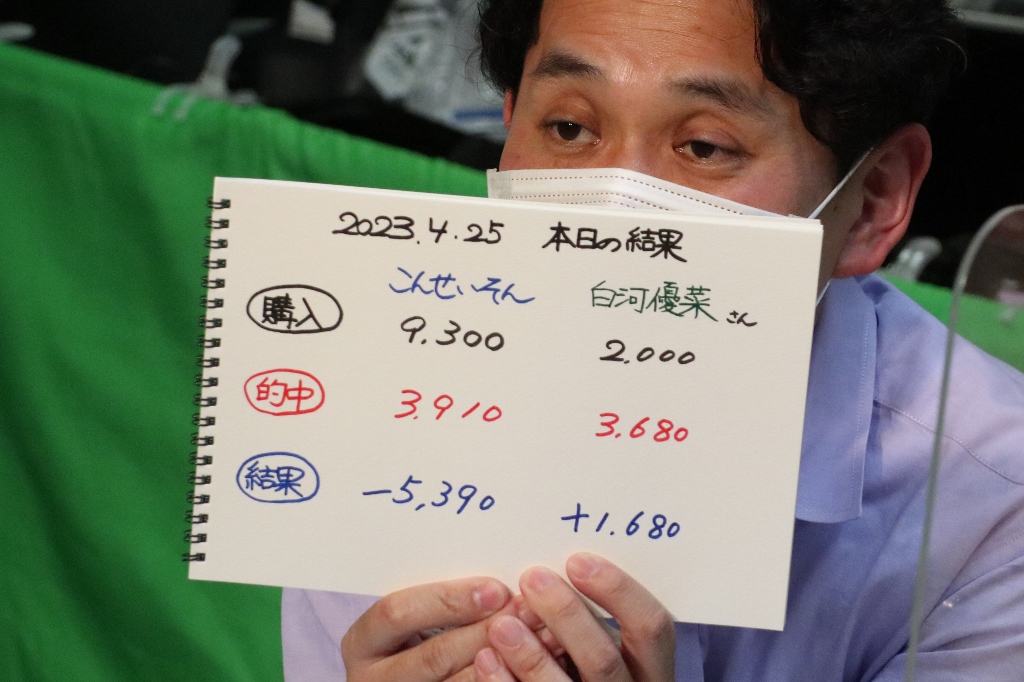 2023.4.25 本日の結果
こんせいそん 白河優菜さん
購入 9.300 2.000
的中 3.910 3.680
結果 -5,390 +1.680